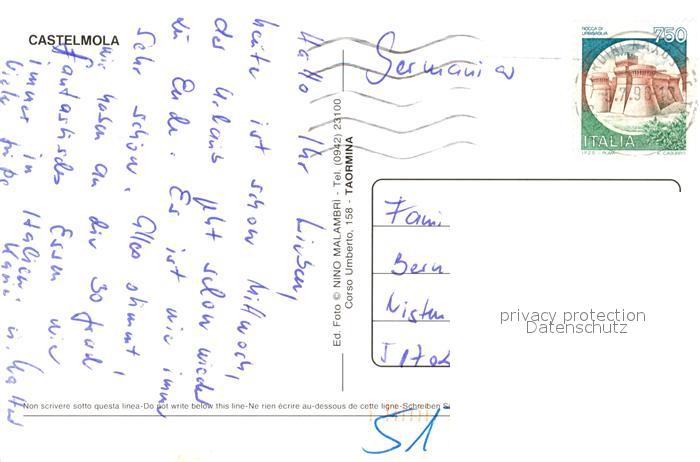 CASTELMOLA
Hallo Ihr Lieben,
heute ist schon Mittwoch,
der Urlaub geht schon wieder
zu Ende. Es ist wie immer
sehr schön. Alles stimmt!
wir haben an die 30 Grad!
Fantastisches Essen wie
immer in Italien.
Viele Grüße
Ed. Foto © NINO MALAMBRÌ - Tel. (0942) 23100
Corso Umberto, 158 - TAORMINA
Germania
ROCCA DI
URBISAGLIA
750
ITALIA
Fami
Bern
privacy protection
Datenschutz
Non scrivere sotto questa linea-Do not write below this line-Ne rien écrire au-dessous de cette ligne-Schreiben S
51